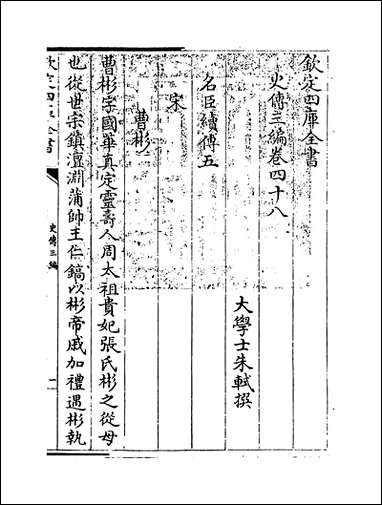 欽定四庫全書
史傳三編卷四十八
大學士朱軾撰
名臣續傳五
宋
曹彬
曹彬字國華真定靈壽人周太祖貴妃張氏彬之從母
也從世宗鎮澶淵蒲帥王仁鎬以彬帝戚加禮遇彬執
欽定四庫全書
史傳三編
一